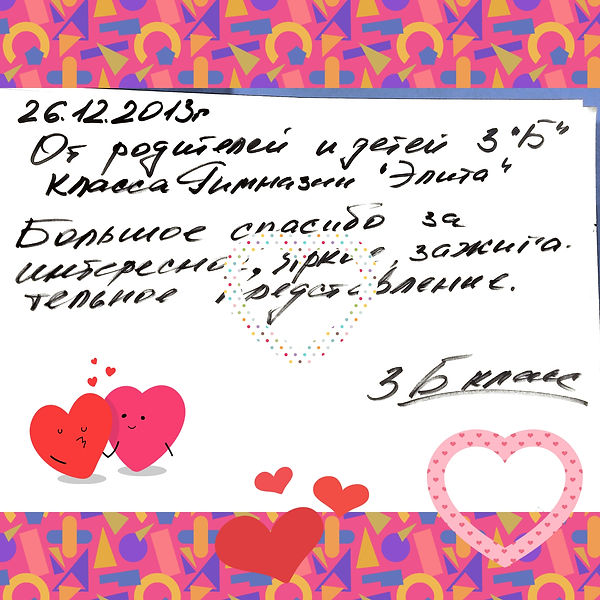 26.12.2013г
От родителей и детей 3 "Б"
класса Гимназии "Элита"
Большое спасибо за
интересное, яркое, зажига-
тельное представление.
3 Б класс